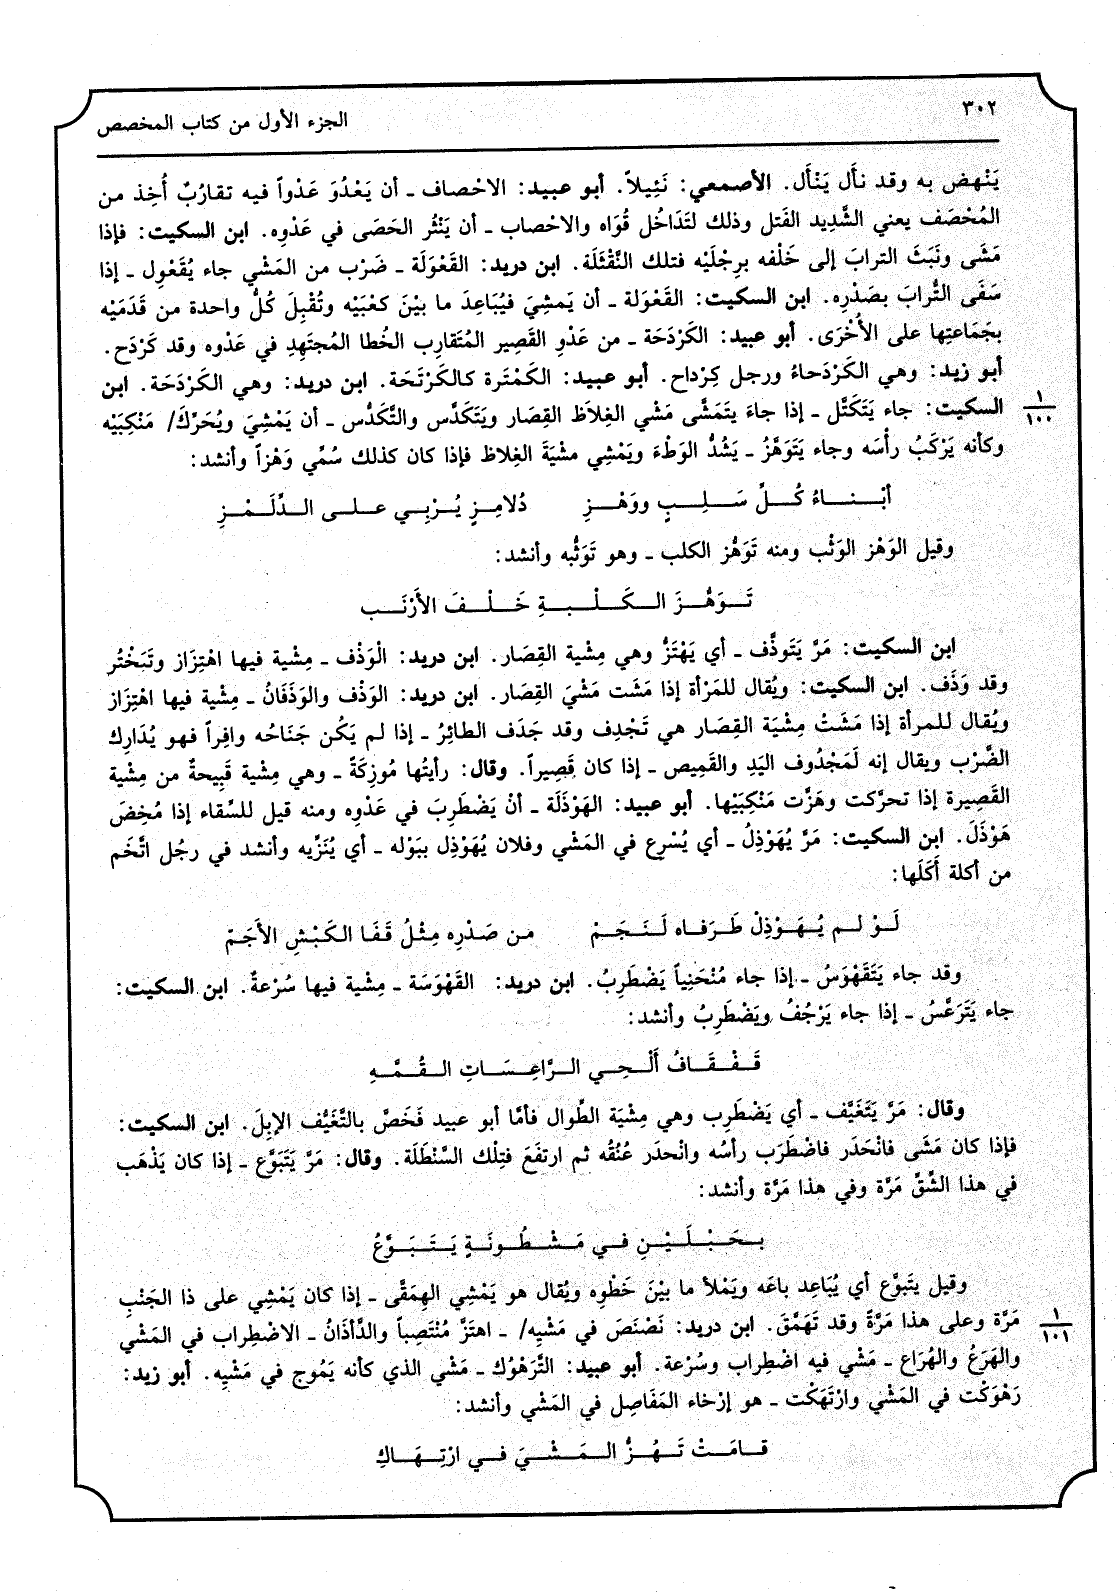 ٣٠٢
الجزء الأول من كتاب المخصص
يَنْهض به وقد نأَل يَنْأَل. الأصمعي: نَئِيلاً. أبو عبيد: الاحْصاف ـ أن يَعْدُوَ عَدْواً فيه تقارُبٌ أُخِذ من
المُحْصَف يعني الشَّدِيد الفَتل وذلك لتَدَاخُل قُوَاه والاحْصاب ـ أن يَنْثُر الحَصَى في عَدْوِه. ابن السكيت: فإذا
مَشَى ونَبَثَ الترابَ إلى خَلْفه برِجْلَيْه فتلك النَّقْثَلَة. ابن دريد: القَعْوَلَة ـ ضَرْب من المَشْي جاء يُقَعْوِل ـ إذا
سَفَى التُّرابَ بصَدْرِه. ابن السكيت: القَعْوَلة ـ أن يَمشِيَ فيُبَاعِدَ ما بيْنَ كعْبَيْه وتُقْبِلَ كُلُّ واحدة من قَدَمَيْه
بجَمَاعتِها على الأُخْرَى. أبو عبيد: الكَرْدَحَة ـ من عَدْوِ القَصِير المُتَقارِب الخُطا المُجتَهِدِ في عَدْوه وقد كَرْدَح.
أبو زيد: وهي الكَرْدَحاءُ ورجل كِرْداح. أبو عبيد: الكَمْتَرة كالكَرْتَحَة. ابن دريد: وهي الكَرْدَحَة. ابن
السكيت: جاء يَتَكَتَّل ـ إذا جاءَ يتَمَشَّى مَشْي الغِلاَظ القِصَار ويَتَكَدَّس والتَّكَدُّس ـ أن يَمْشِيَ ويُحَرِّكَ/ مَنْكِبَيْه
١
١٠٠
وكأنه يَرْكَبُ رأْسَه وجاء يَتَوَهَّزُ ـ يَشُدُّ الوَطْءَ ويَمْشِي مشيَةَ الغِلاظ فإذا كان كذلك سُمِّي وَهْزاً وأنشد:
أبْـنـاءُ كُـلِّ سَـلِـبٍ ووَهْـزِ دُلامِـزٍ يُـرْبِـي عـلـى الـدِّلَـمْـزِ
وقيل الوَهْز الوَثْب ومنه تَوَهُّز الكلب ـ وهو تَوَثُّبه وأنشد:
تَـوَهُّـزَ الـكَـلْـبـةِ خَـلْـفَ الأَرْنَـب
ابن السكيت: مَرَّ يَتَوذَّف ـ أي يَهْتَزُّ وهي مِشْية القِصَار. ابن دريد: الْوَذْف ـ مِشْية فيها اهْتِزَاز وتَبَخْتُر
وقد وَذَف. ابن السكيت: ويُقال للمَرْأة إذا مَشَت مَشْيَ القِصَار. ابن دريد: الوَذْف والوَذَفَانُ ـ مِشْية فيها اهْتِزاز
ويُقال للمرأة إذا مَشَتْ مِشْيَة القِصَار هي تَجْدِف وقد جَدَف الطائِرُ ـ إذا لم يَكُن جَنَاحُه وافِراً فهو يُدَارِك
الضَّرْب ويقال إنه لَمَجْدُوف اليَدِ والقَمِيص ـ إذا كان قَصِيراً. وقال: رأيتُها مُوزِكَةً ـ وهي مِشْية قَبِيحةٌ من مِشْية
القَصِيرة إذا تحرَّكت وهَزَّت مَنْكِبَيْها. أبو عبيد: الهَوْذَلَة ـ أنْ يَضْطَرِبَ في عَدْوِه ومنه قيل للسِّقاء إذا مُخِضَ
هَوْذَلَ. ابن السكيت: مَرَّ يُهَوْذِلُ ـ أي يُسْرِع في المَشْي وفلان يُهَوْذِل ببَوْله ـ أي يُنَزِّيه وأنشد في رجُل اتَّخَم
من أكلة أَكَلَها:
لَـوْ لـم يُـهَـوْذِلْ طَـرَفـاه لَـنَـجَـمْ مـن صَـدْرِه مِـثْـلُ قَـفَـا الكَبْشِ الأجَمّْ
وقد جاء يَتَقَهْوَسُ ـ إذا جاء مُنْحَنِياً يَضْطَرِبُ. ابن دريد: القَهْوَسَة ـ مِشْية فيها سُرْعةٌ. ابن السكيت:
جاء يَتَرَعَّسُ ـ إذا جاء يَرْجُفُ ويَضْطَرِبُ وأنشد:
قَـفْـقَـافُ أَلْـحِـي الـرَّاعِـسَـاتِ الـقُـمَّـهِ
وقال: مَرَّ يَتَغَيَّف ـ أي يَضْطَرِب وهي مِشْيَة الطِّوال فأمَّا أبو عبيد فَخَصَّ بالتَّغَيُّف الإبِلَ. ابن السكيت:
فإذا كان مَشَى فانْحَدَر فاضْطَرَب رأسُه وانْحدَر عُنُقُه ثم ارتفَعَ فتِلْك السَّنْطَلَة. وقال: مَرَّ يَتَبَوَّع ـ إذا كان يَذْهَب
في هذا الشِّقِّ مَرَّة وفي هذا مَرَّة وأنشد:
بـحَـبْـلَـيْـنِ فـي مَـشْـطُـونَـةٍ يَـتَـبَـوَّعُ
وقيل يتَبوَّع أي يُبَاعِد باعَه ويَمْلأ ما بيْنَ خَطْوِه ويُقال هو يَمْشِي الهِمَقَّى ـ إذا كان يَمْشِي على ذا الجَنْبِ
مَرَّة وعلى هذا مَرَّةً وقد تَهَمَّقَ. ابن دريد: نَصْنَصَ في مَشْيِه/ ـ اهتَزَّ مُنْتَصِباً والدَّأذَانُ ـ الاضْطِراب في المَشْي
١
١٠١
والهَرَعُ والهُرَاع ـ مَشْي فيه اضْطِراب وسُرْعة. أبو عبيد: التَّرَهْوُك ـ مَشْي الذي كأنه يَمُوج في مَشْيِه. أبو زيد:
رَهْوَكْت في المَشْي وارْتَهَكْت ـ هو إرْخاء المَفَاصِل في المَشْي وأنشد:
قـامَـتْ تَـهُـزُّ الـمَـشْـيَ فـي ارْتِـهَـاكِ